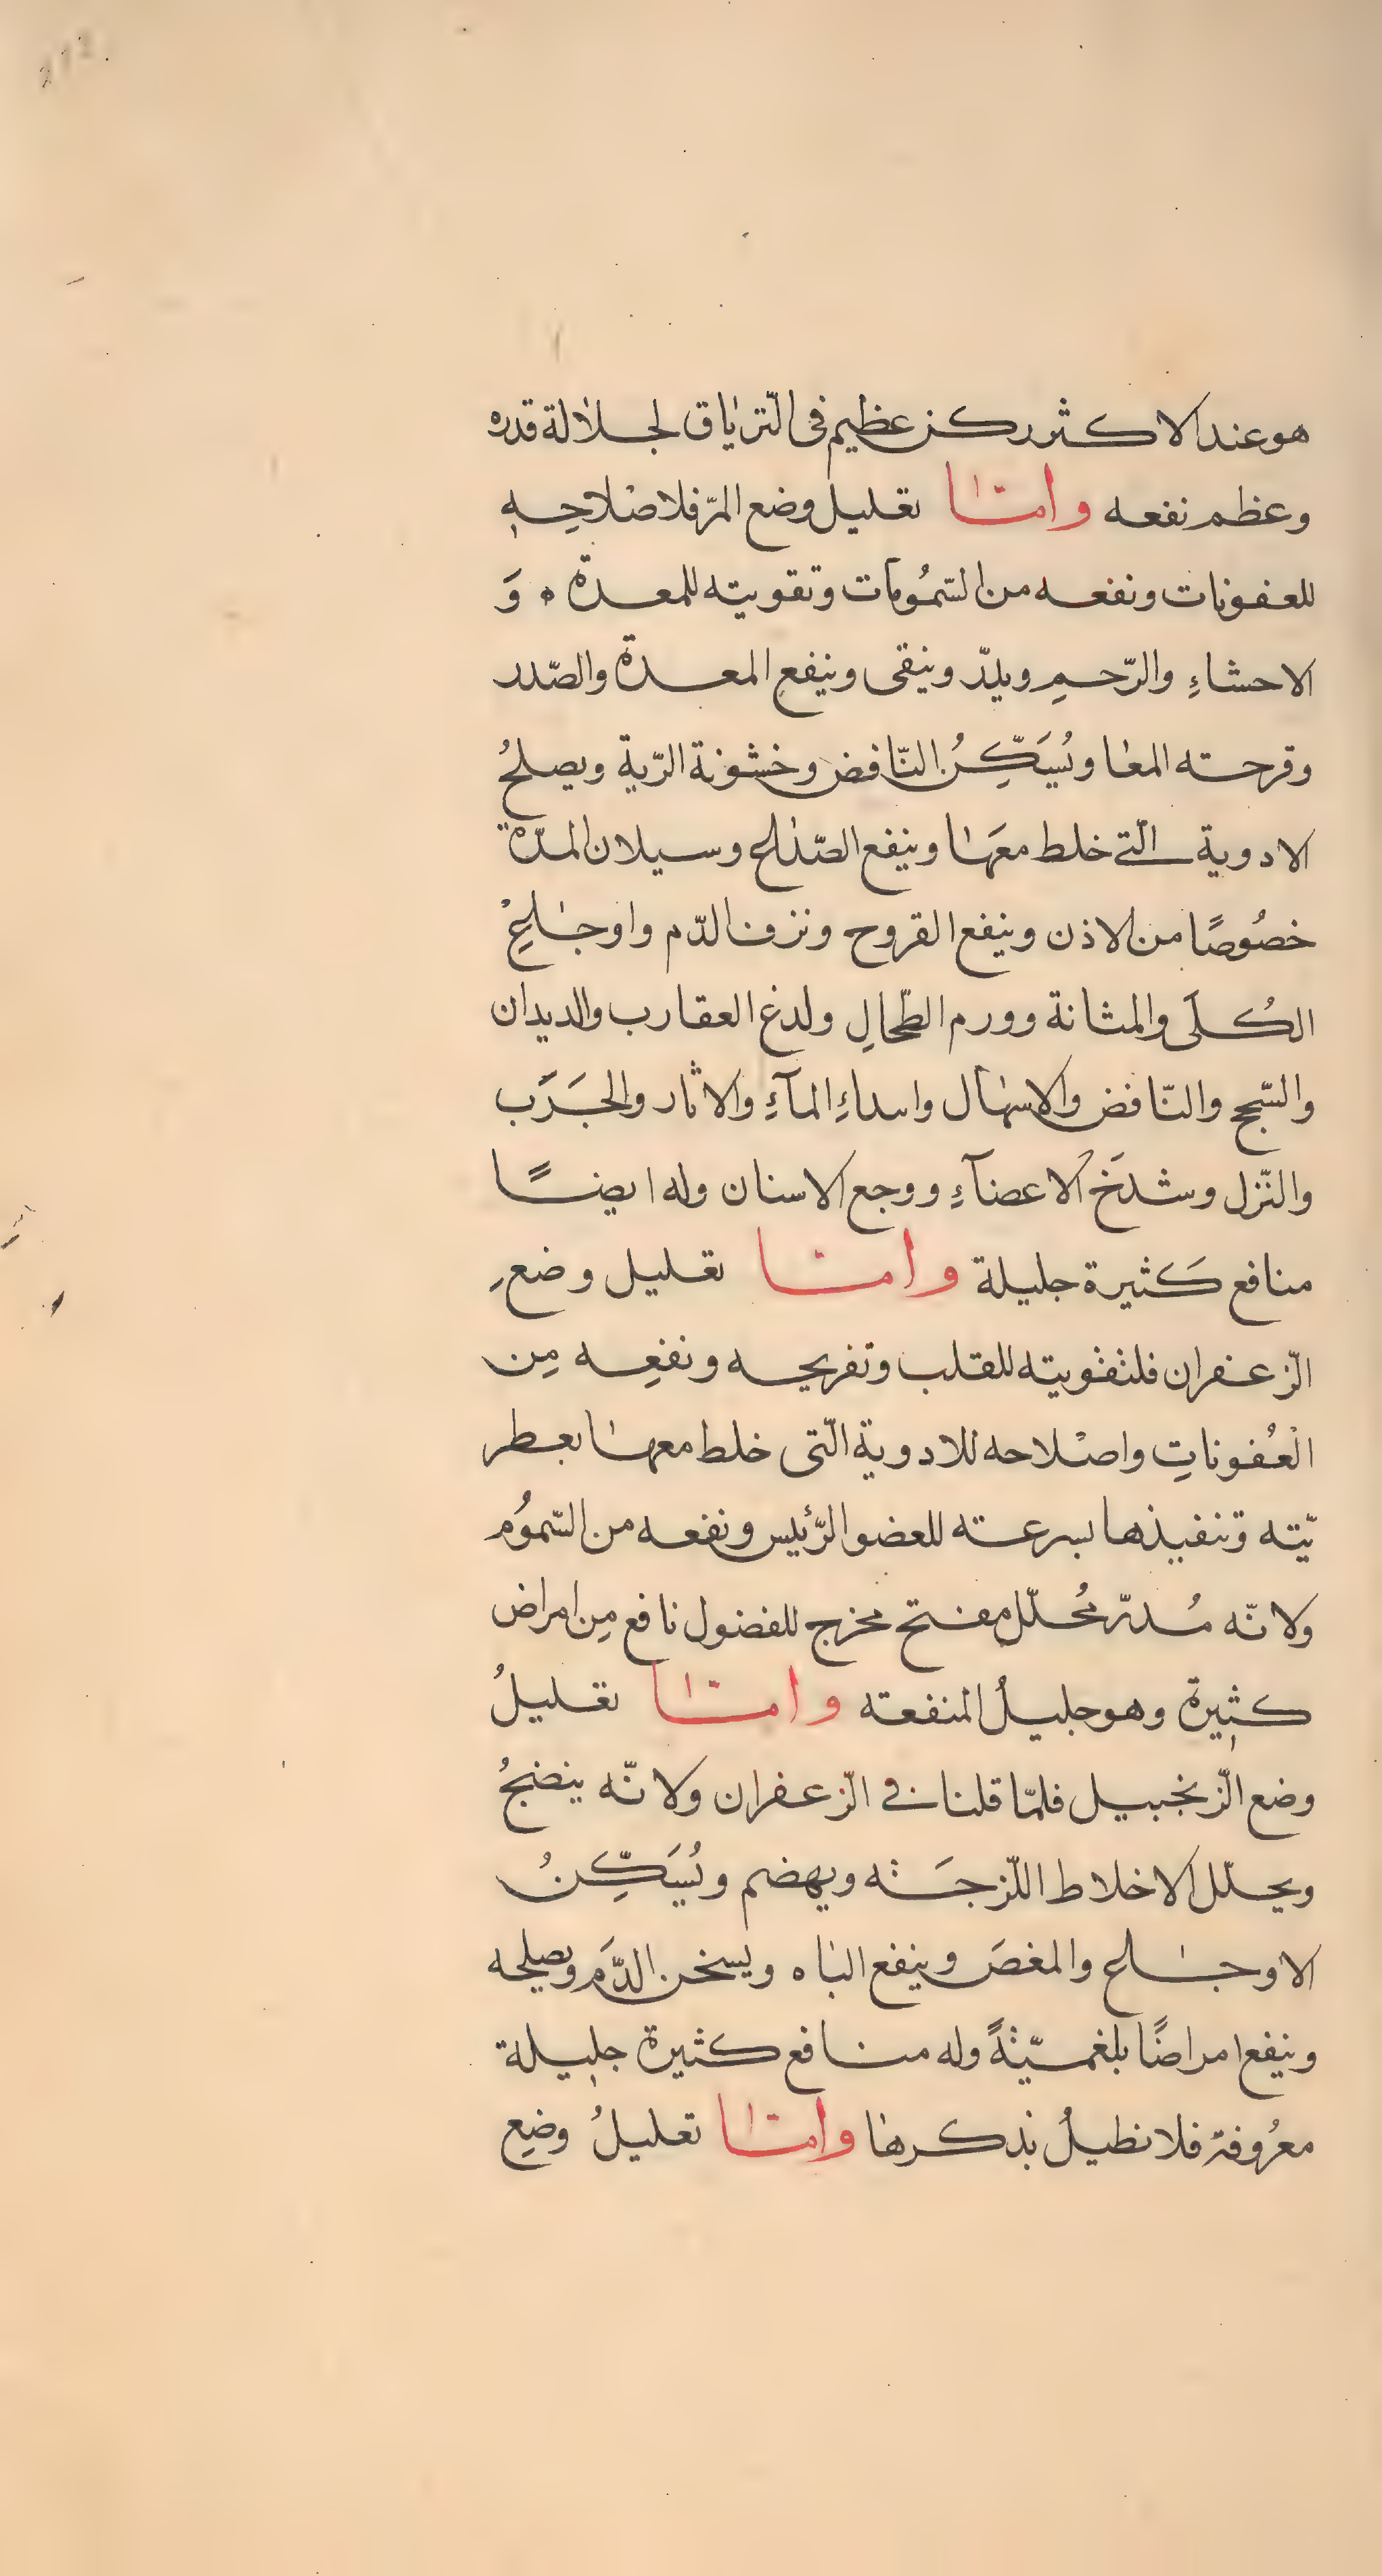 هو عند الاكثر ركن عظيم فى التّرياق لجلالة قدره
وعظم نفعه وامّا تعليل وضع المرّ فلاصْلاحِهِ
للعفونات ونفعه من السّمُومات وتقويته للمعدة وَ
الاحشاءِ والرّحمِ ويدرّ وينقى وينفع المعدة والصّدر
وقرحته المعا ويُسَكِّنُ النّافض وخشونة الرّية ويصلحُ
الادوية الّتى خلط معَها وينفع الصّداع وسيلان المدّة
خصُوصًا من الاذن وينفع القروح ونزف الدّم واوجاعِ
الكُلَى والمثانة وورم الطّحالِ ولدغ العقارب والديدان
والسّحج والنّافض والاسهال وابتداءِ المآءِ والاثار والجَرَب
والنّزل وشدَخ الاعضآءِ ووجع الاسنان وله ايضًا
منافع كَثيرة جليلة وامّا تعليل وضعِ
الزّعفران فلتقويته للقلب وتفريحه ونفعِه مِن
الْعُفوناتِ واصْلاحه للادوية الّتى خلط معها بعطر
يّته وتنفيذها بسرعته للعضو الرّئيس ونفعه من السّموُم
ولانّه مُدرّ مُحلّل مفتح مخرج للفضول نافع مِن امراض
كثيرة وهو جليلُ المنفعته وامّا تعليلُ
وضع الزّنجبيل فلمّا قلنا فى الزّعفران ولانّه ينضجُ
ويحلّل الاخلاط اللّزجَة ويهضم ويُسَكِّنُ
الاوجاع والمغصَ وينفع الباه ويسخن الدَّم ويصلحه
وينفع امراضًا بلغميّةً وله منافع كثيرة جليلة
معرُوفة فلا نطيلُ بذكرها وامّا تعليلُ وضعِ